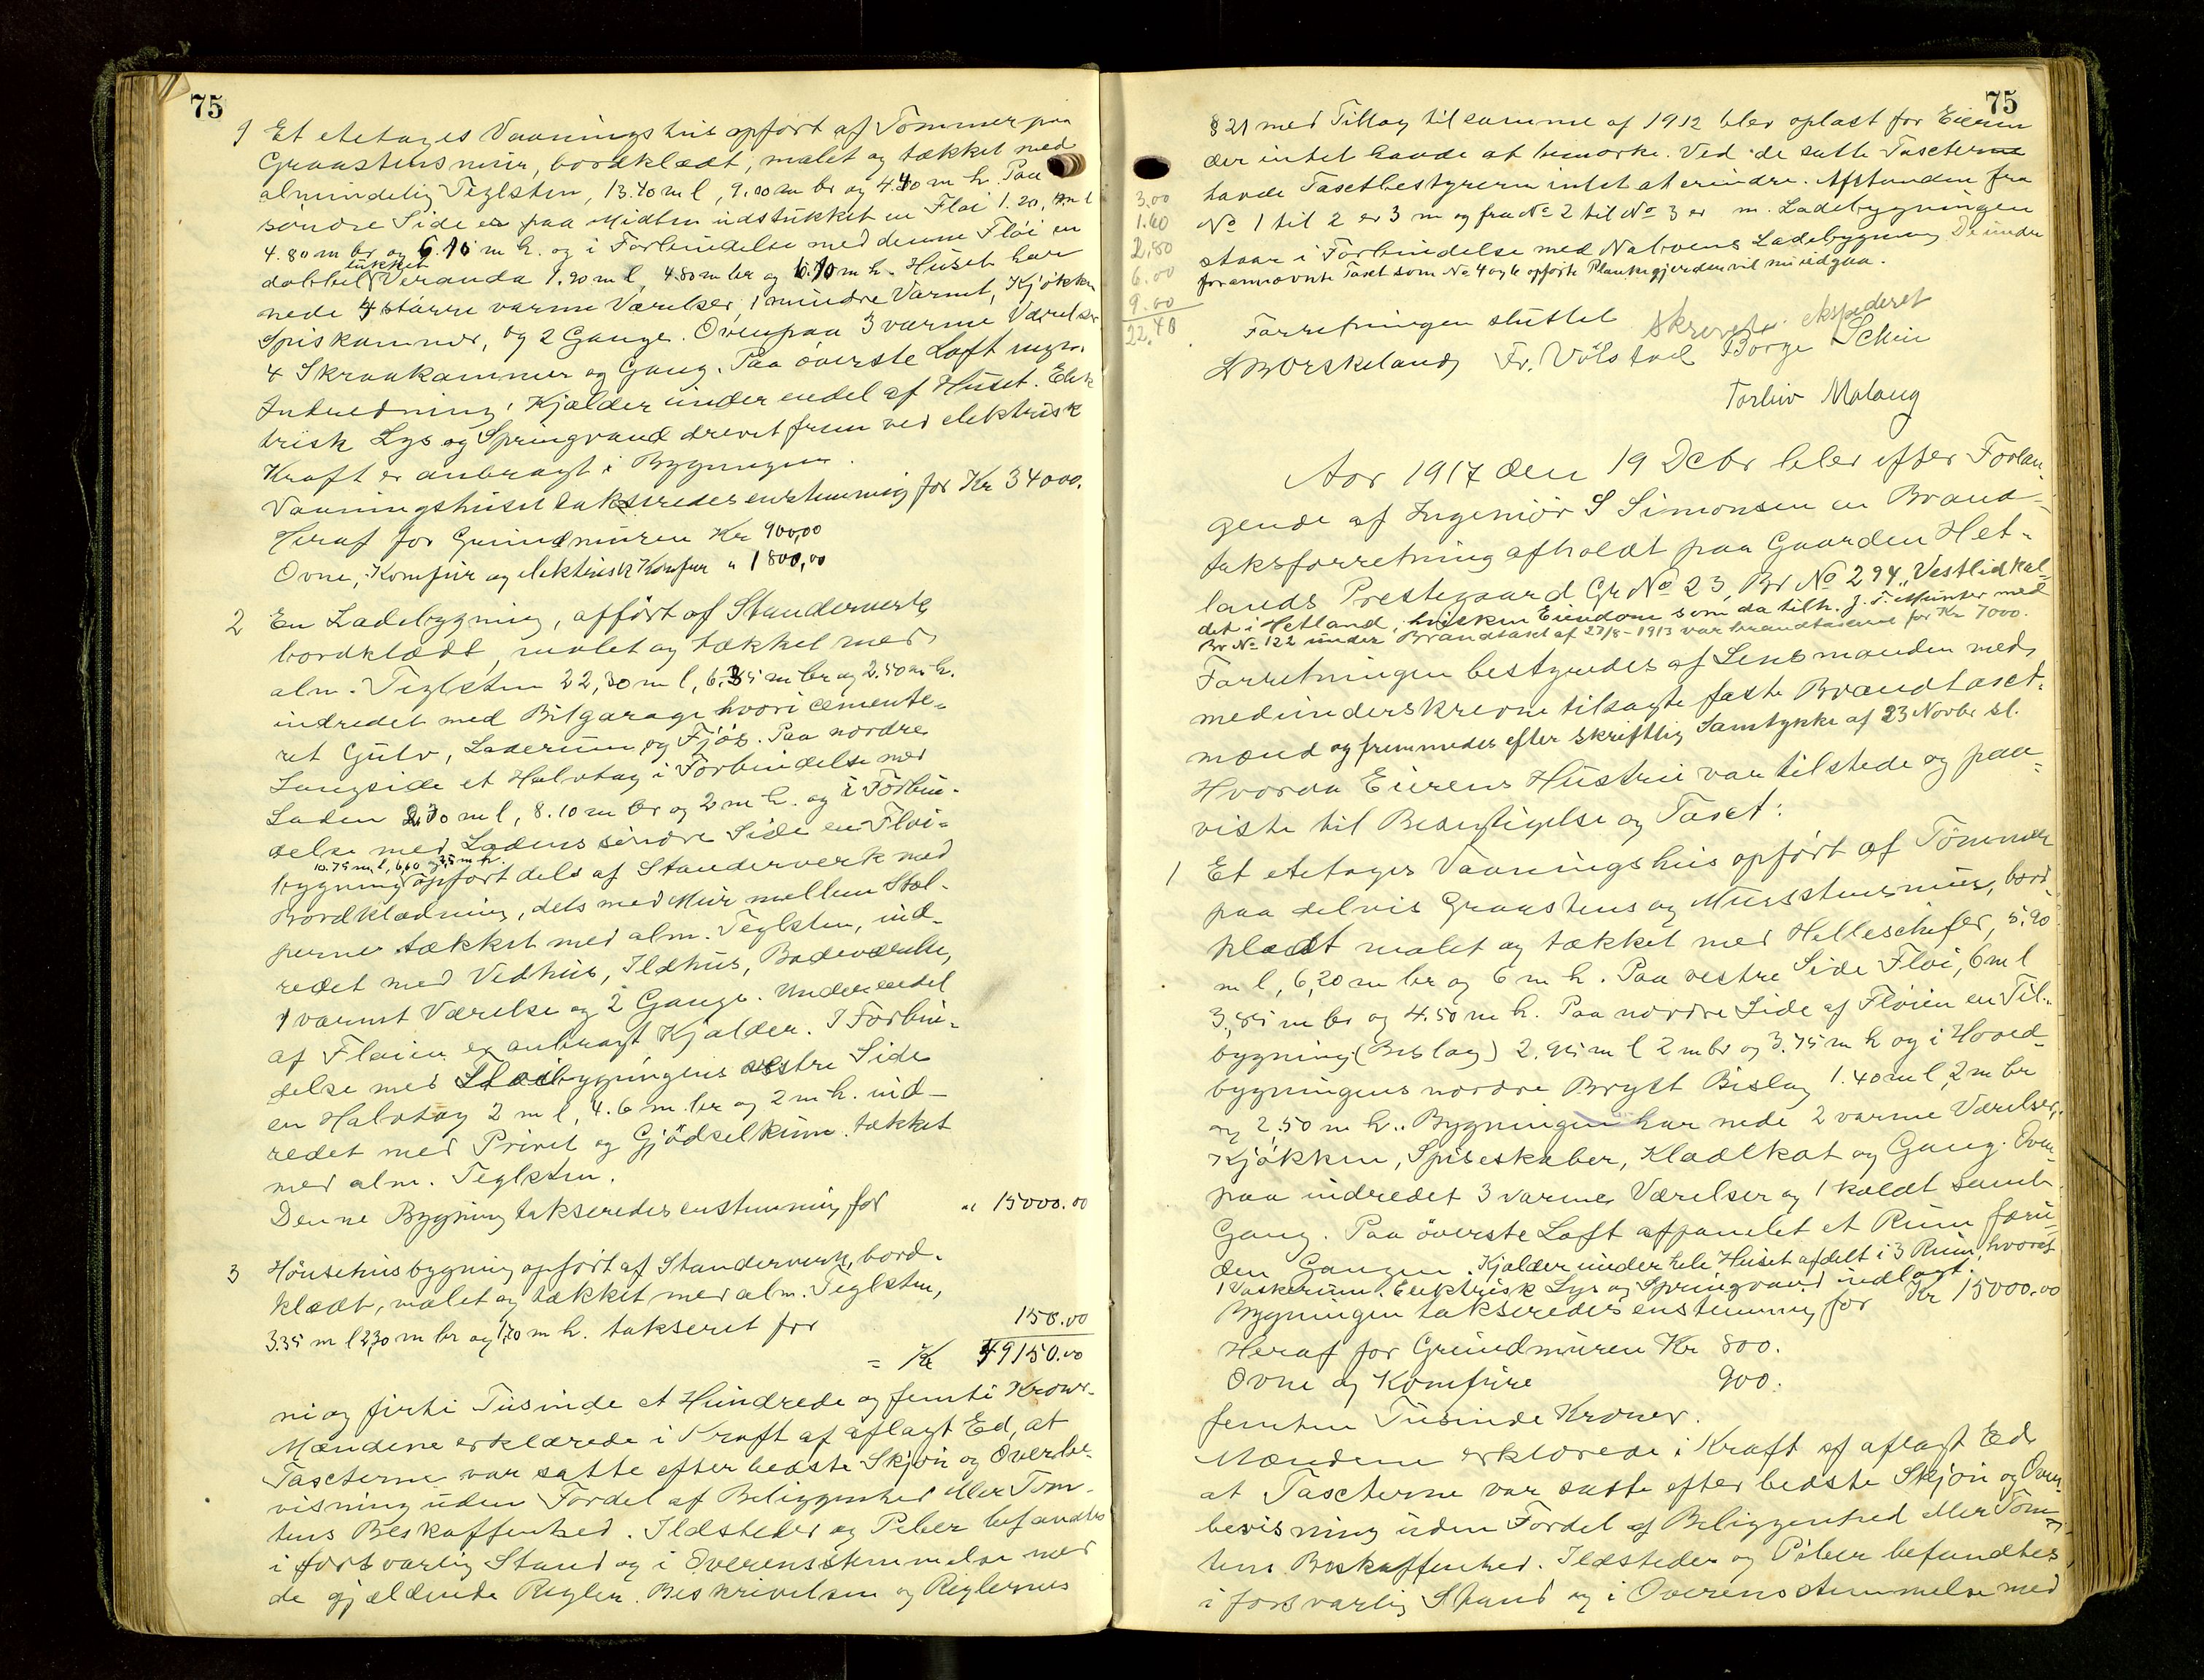 75
1 Et etetages Vaaningshus opført af Tømmer paa
Graastensmur, bordklædt, malet og tækket med
almindelig Teglsten, 13.70 m l, 9.00 m br og 4.40 m h. Paa
søndre Side er paa Midten udstukket en Fløi 1.20 m l
4.80 m br og 6.10 m h. og i Forbindelse med denne Fløi en
lukket
dobbel Veranda 1.90 m l, 4.80 m br og 6.10 m h. Huset har
nede 4 større varme Værelser, 1 mindre Varmt, Kjøkken
Spiskammer, og 2 Gange. Ovenpaa 3 varme Værelser
4 Skraakammer og Gang. Paa øverste Loft ingen
Indredning. Kjælder under endel af Huset. Elek
trisk Lys og Springvand drevet frem ved elektrisk
Kraft er anbragt i Bygningen.
Vaaningshuset takseredes enstemmig for Kr 34000.
Heraf for Grundmuren Kr 900,00
Ovne, Komfur og elektrisk Komfur " 1800,00
2 En Ladebygning, opført af Standerverk,
bordklædt, malet og tækket med
alm. Teglsten 22,30 m l, 6.35 m br og 2.50 m h.
indredet med Bilgarage hvori cemente-
ret Gulv, Laderum og Fjøs. Paa nordre
Langside et Halvtag i Forbindelse med
Laden 2.70 m l, 8.10 m br og 2 m h. og i Forbin-
delse med Ladens søndre Side en Fløi-
10.75 m l, 6,60 og 3,5 m h.
bygning opført dels af Standerverk med
Bordklædning, dels med Mur mellem Stol-
perne tækket med alm. Teglsten, ind-
redet med Vedhus, Ildhus, Badeværelse,
1 varmt Værelse og 2 Gange. Under endel
af Fløien er anbragt Kjælder. I Forbin-
delse med Fløibygningens vestre Side
en Halvtag 2 m l, 4.6 m br og 2 m h. ind-
redet med Privet og Gjødselkum. tækket
med alm. Teglsten.
Denne Bygning takseredes enstemmig for " 15000.00
3 Hønsehusbygning opført af Standerverk, bord-
klædt, malet og tækket med alm. Teglsten,
3.35 m l 2,30 m br og 1,70 m h. takseret for 150.00
= Kr 49150.00
ni og firti Tusinde et Hundrede og femti Kroner-
Mændene erklærede i Kraft af aflagt Ed, at
Taxterne var satte efter bedste Skjøn og Overbe-
visning uden Fordel af Beliggenhed eller Tom-
tens Beskaffenhed. Ildsteder og Piber befandtes
i forsvarlig Stand og i Overensstemmelse med
de gjældende Regler. Beskrivelsen og Reglernes
75
§ 21 med Tillæg til samme af 1912 blev oplæst for Eieren
der intet havde at bemærke. Ved de satte Taxterne
havde Taxtbestyreren intet at erindre. Afstanden fra
No 1 til 2 er 3 m og fra No 2 til No 3 er m. Ladebygningen
staar i Forbindelse med Naboens Ladebygning De under
forannævnte Taxt som No 4 og 6 opførte Plankegjerder vil nu udgaa.
3.00
1.60
2,80
6.00
9.00
22.40
Forretningen sluttet Skrevet. ekspederet
Fr. Vølstad Børge Schin
Torleiv Malaug
Aar 1917 den 19 Dcbr blev efter Forlan
gende af Ingeniør S Simonsen en Brand-
taksforretning afholdt paa Gaarden Het-
lands Prestegaard Gr No 23, Br No 294 "Vestlid kal-
det i Hetland, hvilken Eiendom som da tilh. J. T. Munter med
Br No 122 under Brandtaxt af 27/8-1913 var brandtaxeret for Kr 7000.
Forretningen bestyredes af Lensmanden med
medunderskrevne tilsagte faste Brandtaxt-
mænd og fremmedes efter skriftlig Samtykke af 23 Novbr sl.
Hvorda Eierens Hustru var tilstede og paa-
viste til Besigtigelse og Taxt:
1 Et etetages Vaaningshus opført af Tømmer
paa delvis Graastens og Mursstensmur, bord-
klædt malet og tækket med Helleschifer, 5,90
m l, 6,20 m br og 6 m h. Paa vestre Side Fløi, 6 m l
3,85 m br og 4.50 m h. Paa nordre Side af Fløien en Til-
bygning (Bislag) 2.95 m l 2 m br og 3.75 m h og i Hoved-
bygningens nordre Bryst Bislag 1.40 m l, 2 m br
og 2,50 m h. Bygningen har nede 2 varme Værelser,
Kjøkken, Spiseskaber, Klædkot og Gang. Oven-
paa indredet 3 varme Værelser og 1 koldt samt
Gang. Paa øverste Loft afpanelet et Rum foru-
den Gangen. Kjælder under hele Huset afdelt i 3 Rum, hvoraf
1 Vaskerum. Elektrisk Lys og Springvand indlagt.
Bygningen takseredes enstemmig for Kr 15000.00
Heraf for Grundmuren Kr 800.
Ovne og Komfure 900.
femten Tusinde Kroner.
Mændene erklærede i Kraft af aflagt Ed
at Taxterne var satte efter bedste Skjøn og Over-
bevisning uden Fordel af Beliggenhed eller Tom-
tens Beskaffenhed. Ildsteder og Piber befandtes
i forsvarlig Stand og i Overensstemmelse med